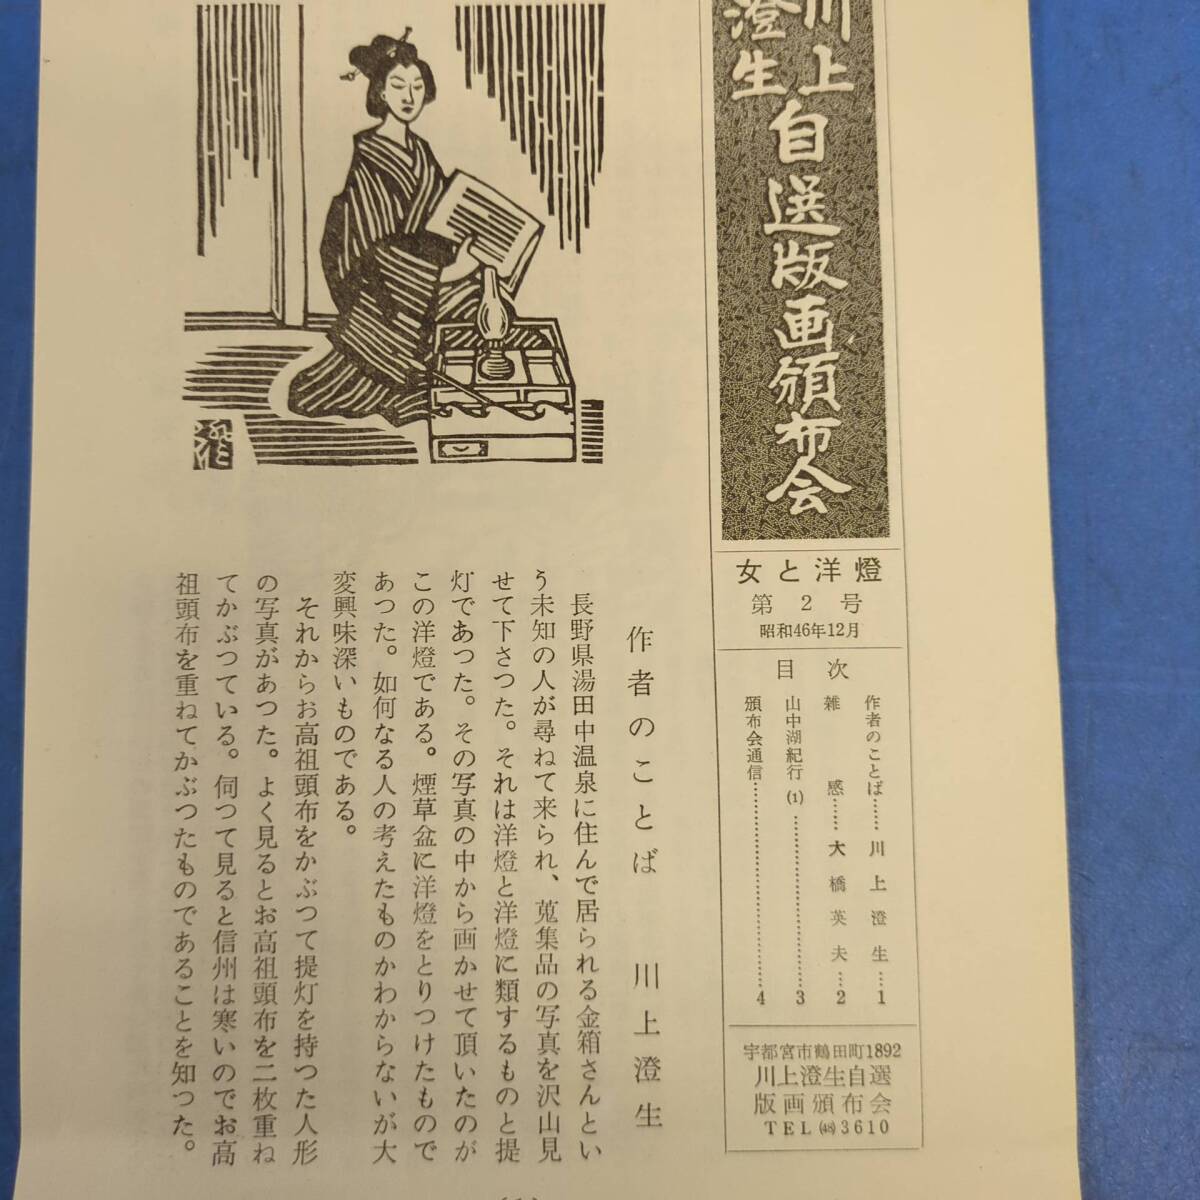 川上
澄生
自選版画頒布会
女と洋燈
第2号
昭和46年12月
目次
作者のことば……川上澄生…1
雑感……大橋英夫…2
山中湖紀行(1)……………………3
頒布会通信……………………………4
宇都宮市鶴田町1892
川上澄生自選
版画頒布会
TEL(48)3610
作者のことば 川上澄生
長野県湯田中温泉に住んで居られる金箱さんとい
う未知の人が尋ねて来られ、蒐集品の写真を沢山見
せて下さつた。それは洋燈と洋燈に類するものと提
灯であつた。その写真の中から画かせて頂いたのが
この洋燈である。煙草盆に洋燈をとりつけたもので
あつた。如何なる人の考えたものかわからないが大
変興味深いものである。
それからお高祖頭布をかぶつて提灯を持つた人形
の写真があつた。よく見るとお高祖頭布を二枚重ね
てかぶつている。伺つて見ると信州は寒いのでお高
祖頭布を重ねてかぶつたものであることを知つた。